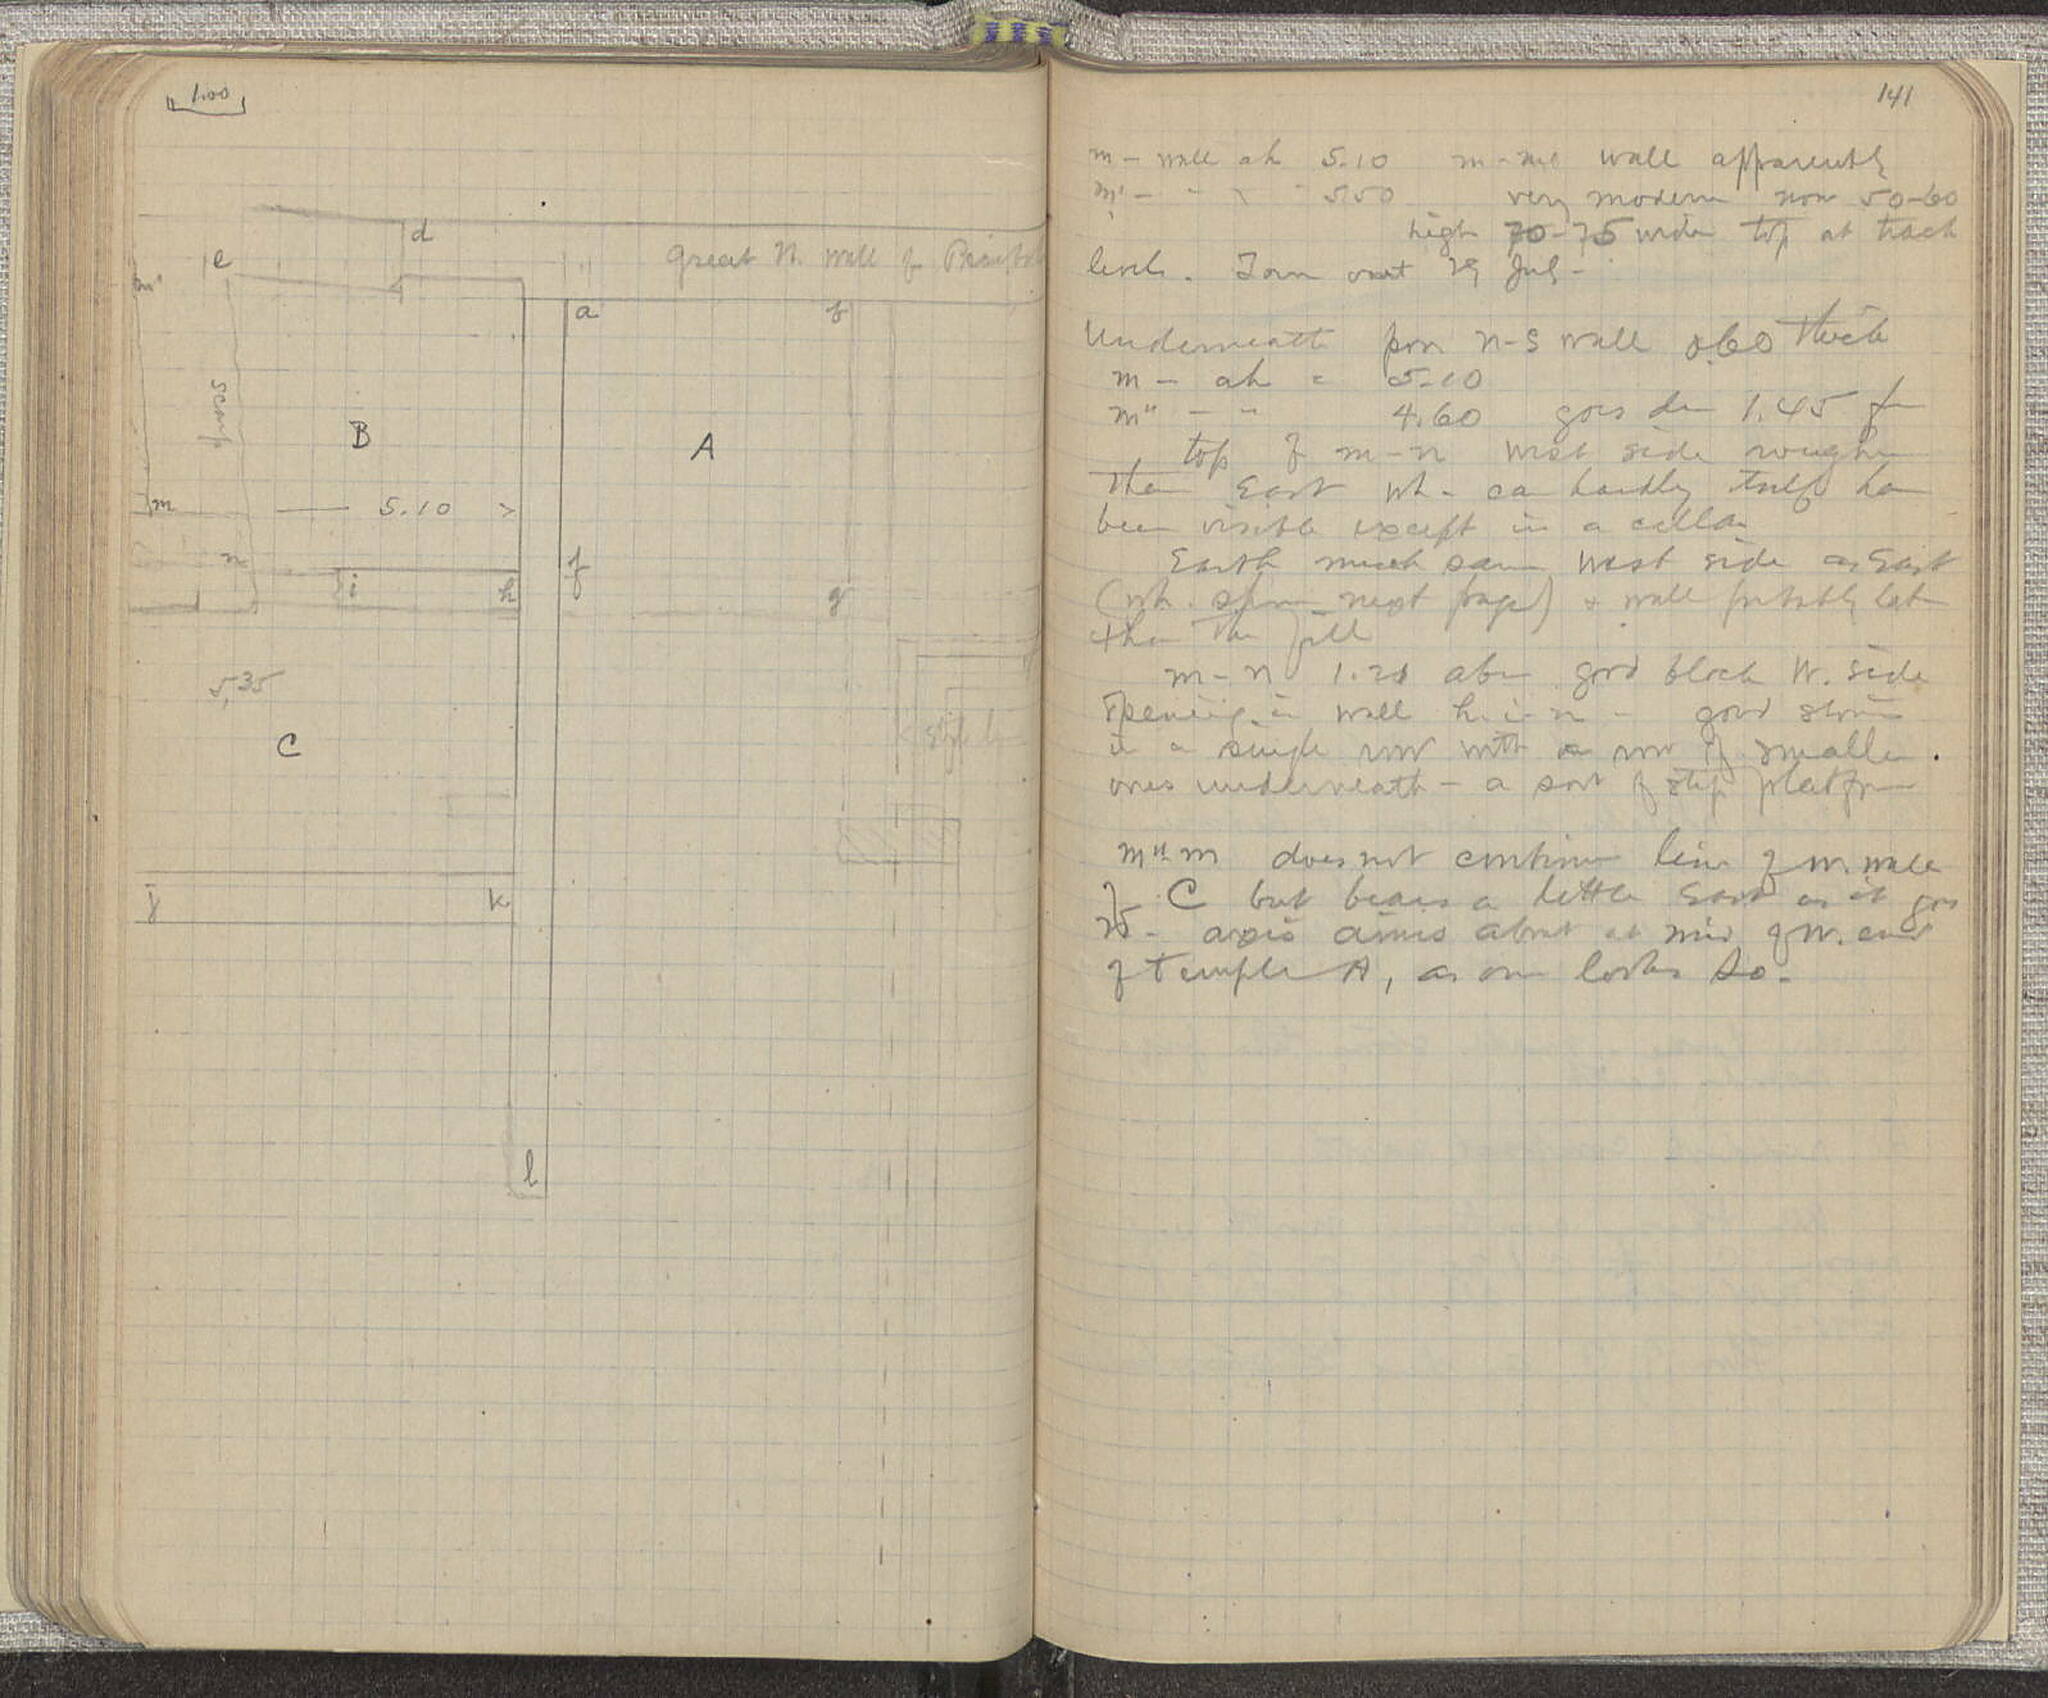 1.00
d
Great N. wall of
e
m'
a
b
scarp
B
A
m
5.10
n
i
h
f
g
5.35
C
j
k
l
141
m - wall ah 5.10 m-m' wall apparently
m' - " " " 5.50 very modern now 50-60
high 70-75 wide top at track
level. Torn out 29 July -
Underneath poor N-S wall 0.60 thick
m - ah = 5.10
m" - " 4.60 goes down 1.45 fr
top of m-n West side rougher
than East wh. can hardly itself have
been visible except in a cellar
Earth much same West side as East
(wh. next page) & wall probably later
than the fill
m-n 1.20 above good block W. side
Opening in wall h-i-n - good stones
in a single row with a row of smaller
ones underneath - a sort of step platform
m"-m does not continue line of W. wall
of C but bears a little East as it goes
N - axis aims about at mid of W. end
of temple A, as one looks So.